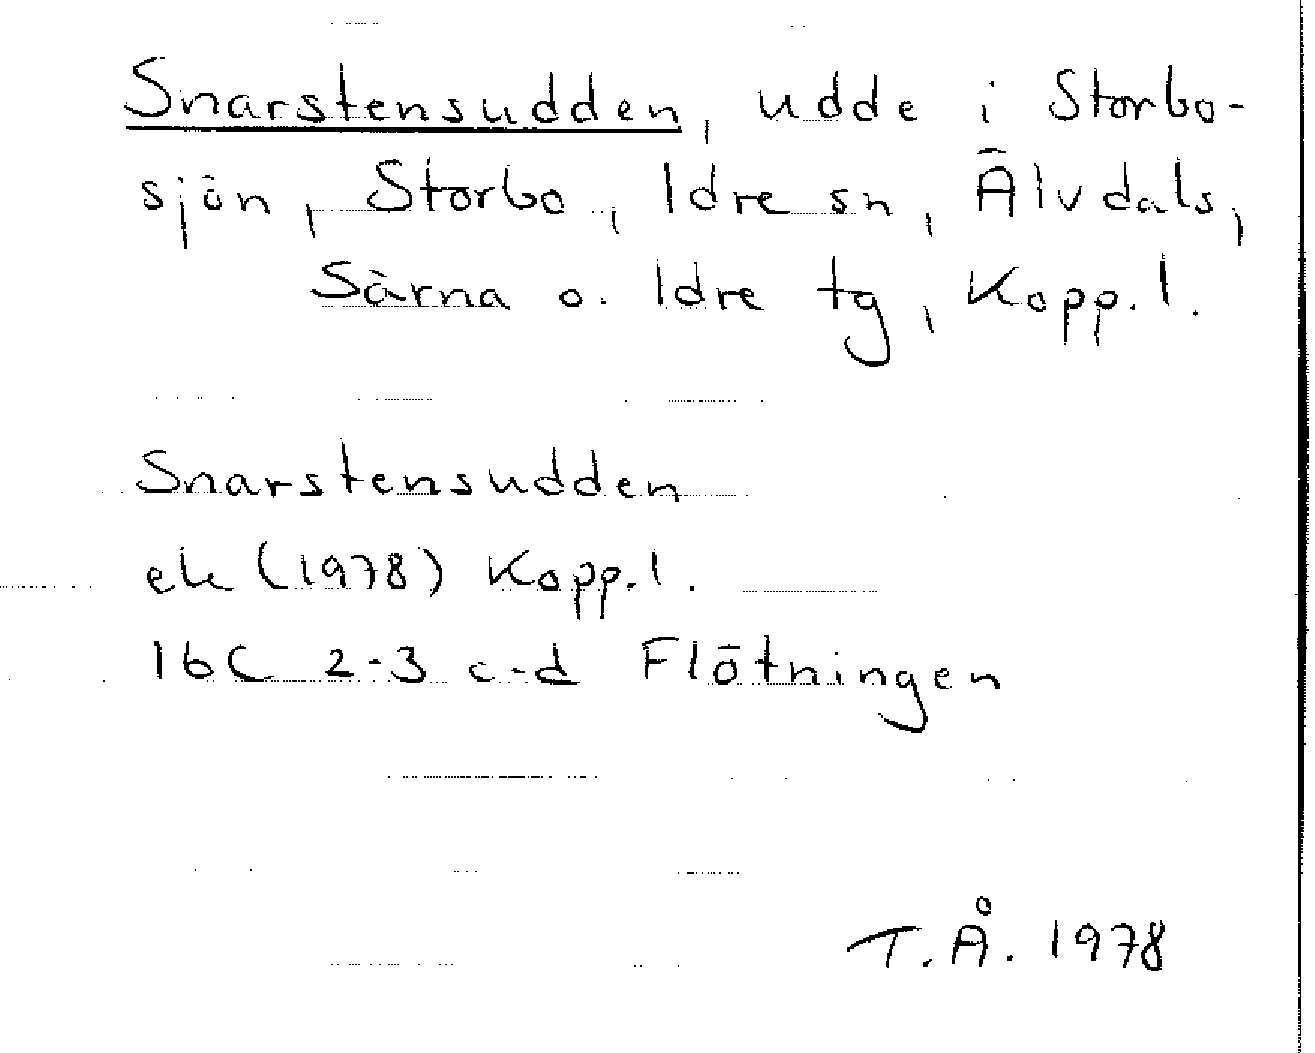 Snarstensudden, udde i Storbo-
sjön, Storbo, Idre sn, Älvdals,
Särna o. Idre tg, Kopp. l.
Snarstensudden
ek (1978) Kopp. l.
16C 2-3 c-d Flötningen
T. Å. 1978